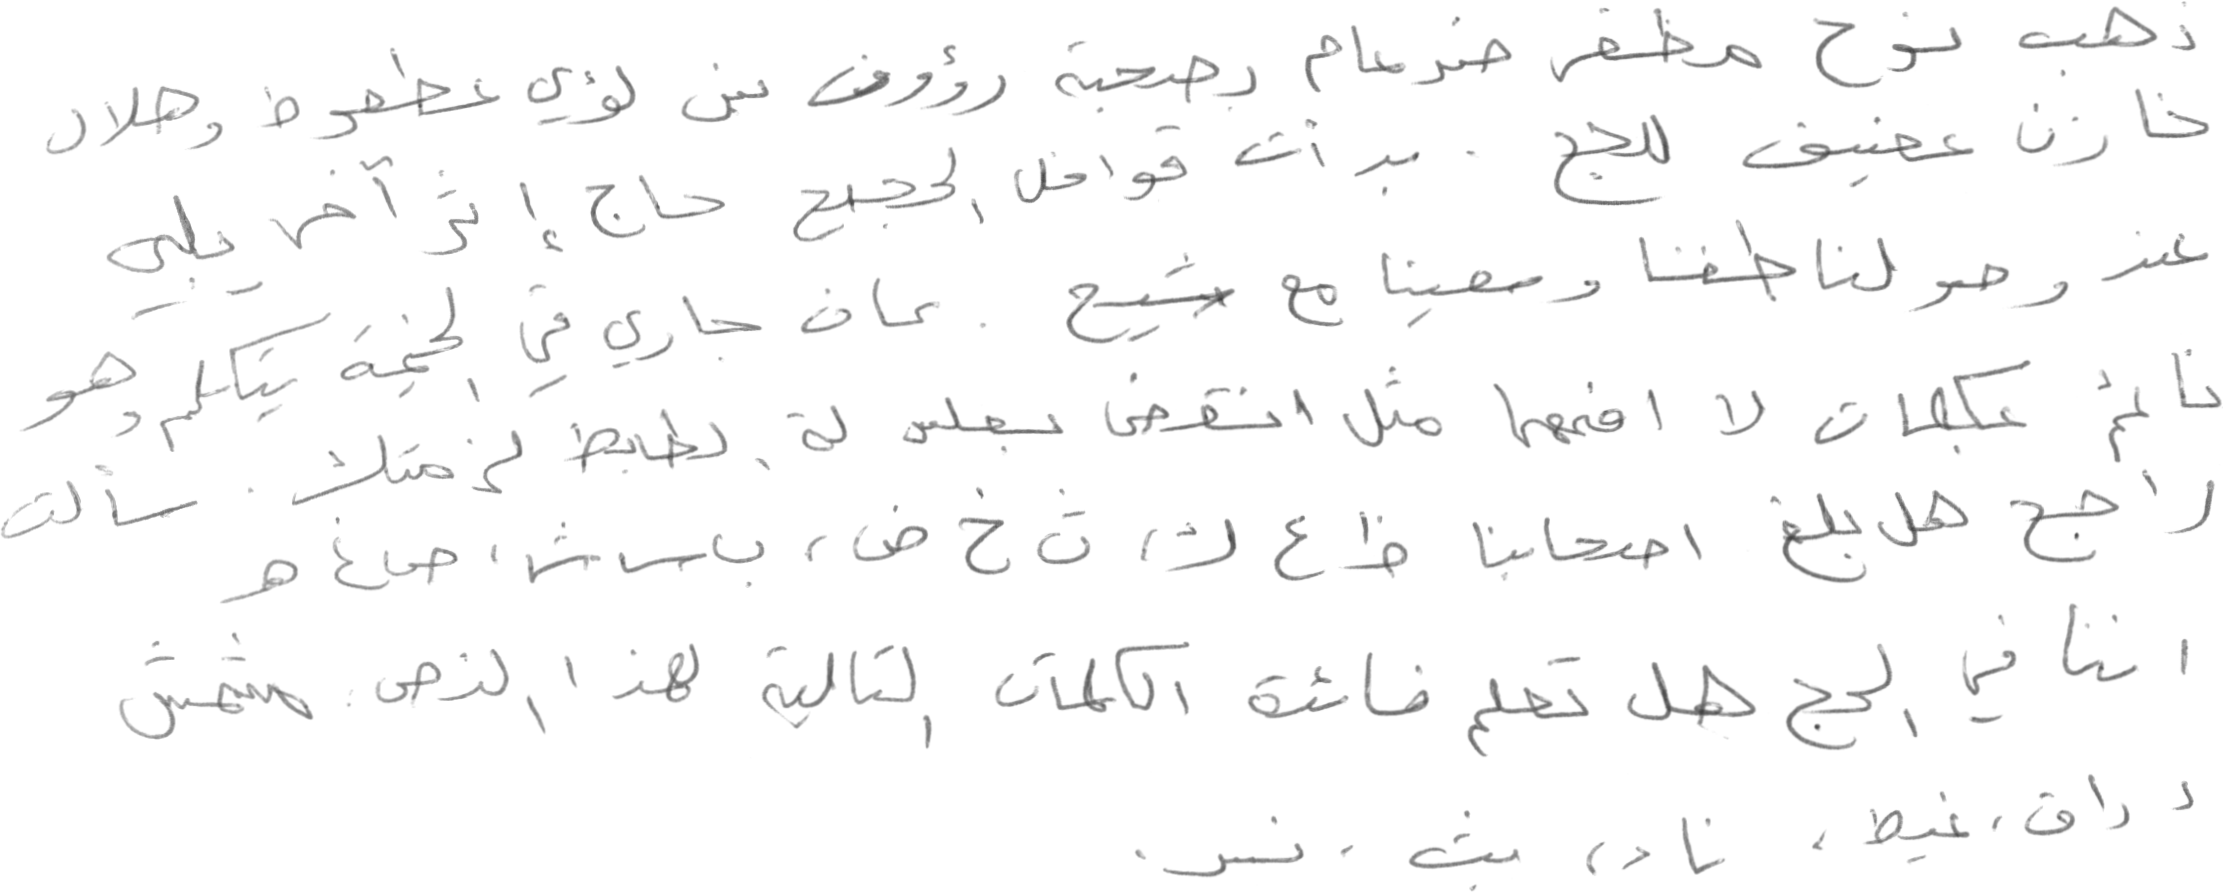 ذهب نوح مظفر ضرغام بصحبة رؤوف بن لؤي عظعوظ وهلال
خازن عفيف للحج . بدأت قوافل الحجيج حاج إثر آخر يلبي
عند وصولنا طفنا وسعينا مع شيخ . كان جاري في الخيمة يتكلم وهو
نائم بكلمات لا افهمها مثل انتقض بعلس لة لظابط لزمتك . سألت
راجح هل بلغ اصحابنا ظ ع ك، ث خ ض، ب س ش، ص غ ه
اننا في الحج هل تعلم فائدة الكلمات التالية لهذا النص مشمش
دراق، غيط، ناد، بث، نسر.